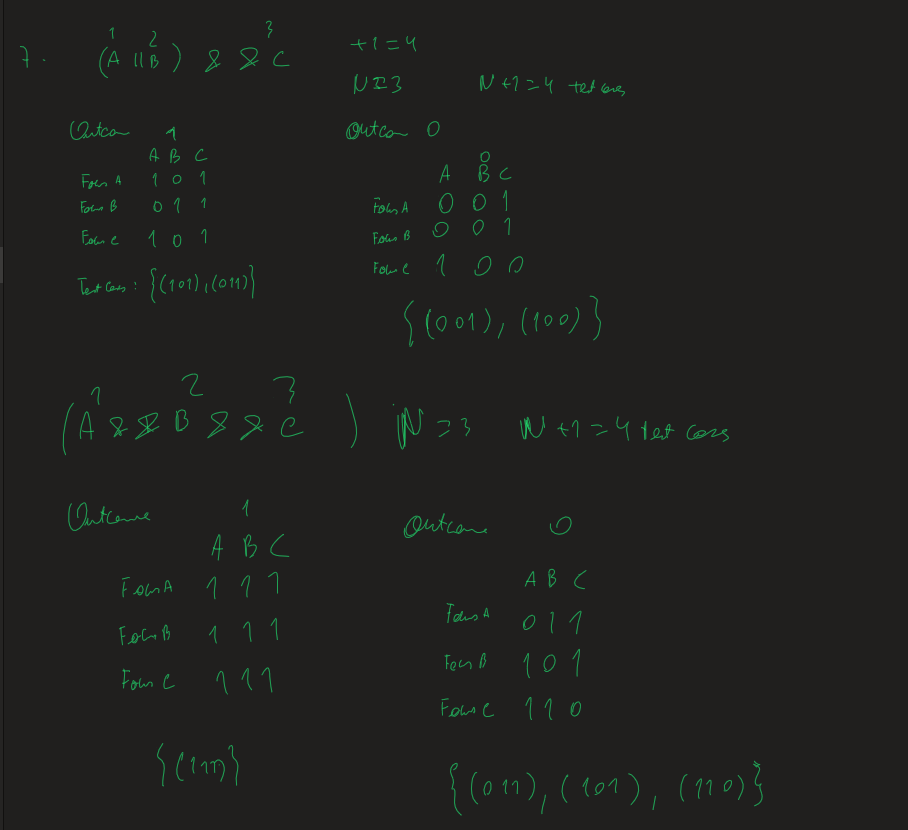 7. (A || B) & & C +1=4
1 2 3
N=3 N+1=4 test cases
Outcom 1 Outcom 0
A B C
Focus A 1 0 1
Focus B 0 1 1
Focus C 1 0 1
Test Cases : {(101),(011)}
0
A B C
Focus A 0 0 1
Focus B 0 0 1
Focus C 1 0 0
{(001), (100)}
1 2 3
(A & & B & & C ) N=3 N+1=4 test cases
Outcome 1
A B C
Focus A 1 1 1
Focus B 1 1 1
Focus C 1 1 1
{(111)}
Outcome 0
A B C
Focus A 0 1 1
Focus B 1 0 1
Focus C 1 1 0
{(011), (101), (110)}